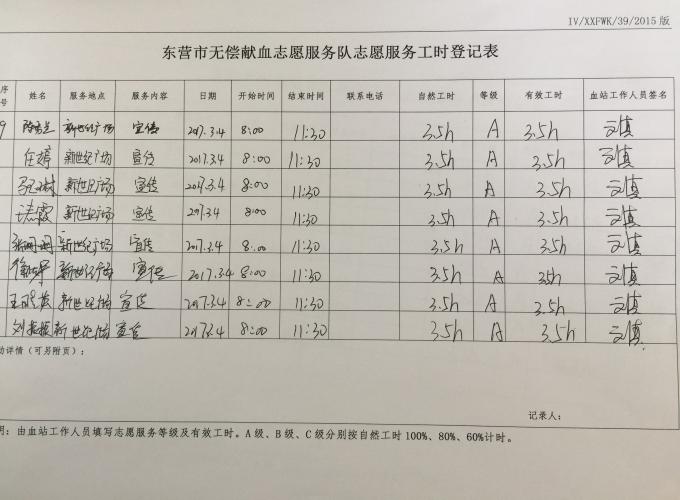 IV/XXFWK/39/2015版
东营市无偿献血志愿服务队志愿服务工时登记表
序号 姓名 服务地点 服务内容 日期 开始时间 结束时间 联系电话 自然工时 等级 有效工时 血站工作人员签名
9 新世纪广场 宣传 2017.3.4 8:00 11:30 3.5h A 3.5h
任婷 新世纪广场 宣传 2017.3.4 8:00 11:30 3.5h A 3.5h
新世纪广场 宣传 2017.3.4 8:00 11:30 3.5h A 3.5h
新世纪广场 宣传 2017.3.4 8:00 11:30 3.5h A 3.5h
新世纪广场 宣传 2017.3.4 8:00 11:30 3.5h A 3.5h
新世纪广场 宣传 2017.3.4 8:00 11:30 3.5h A 3.5h
新世纪广场 宣传 2017.3.4 8:00 11:30 3.5h A 3.5h
新世纪广场 宣传 2017.3.4 8:00 11:30 3.5h A 3.5h
动详情（可另附页）：
记录人：
明：由血站工作人员填写志愿服务等级及有效工时。A级、B级、C级分别按自然工时100%、80%、60%计时。